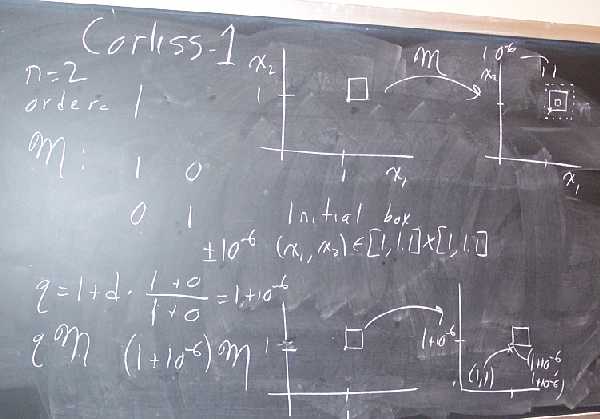 Corliss-1
n=2
order= 1
M: 1 0
0 1
x₂
1
M
1
x₁
10⁻⁶
x₂
x₁
Initial box
±10⁻⁶ (x₁, x₂) ∈ [1, 1.1] × [1, 1.1]
q = 1 + d · (1+0)/(1+0) = 1 + 10⁻⁶
qM (1+10⁻⁶)M
1
1+10⁻⁶
(1,1)
(1+10⁻⁶,
1+10⁻⁶)